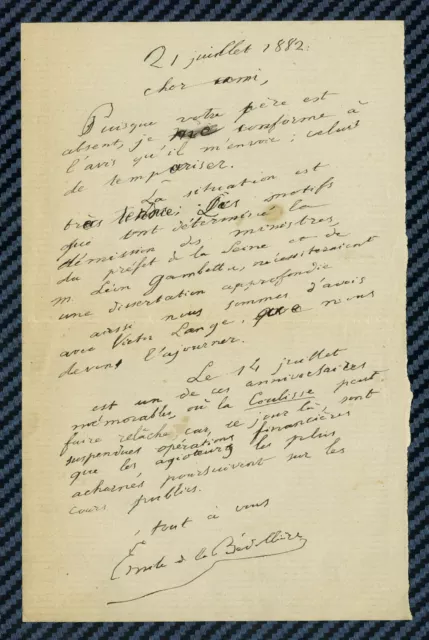 21 juillet 1882.
cher ami,
Puisque votre père est
absent, je me conforme à
l'avis qu'il m'envoie : celui
de temporiser.
La situation est
très tendue. Les motifs
qui ont déterminé la
démission des ministres,
du préfet de la Seine et de
m Léon Gambetta, nécessiteraient
une dissertation approfondie
ainsi nous sommes d'avis
avec Victor Lange, que nous
devons l'ajourner.
Le 14 juillet
est un de ces anniversaires
mémorables, où la Coulisse peut
faire relâche, car, ce jour là sont
suspendues opérations financières
que les agioteurs les plus
acharnés poursuivent sur les
cours publics.
tout à vous
Emile de la Bédollière